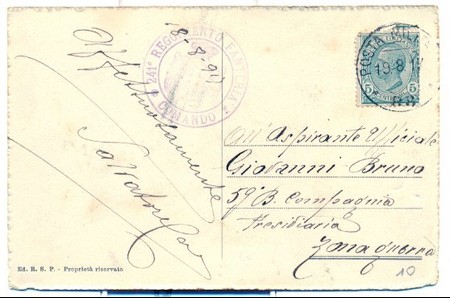 8-8-917
241º REGGIMENTO FANTERIA
COMANDO
Affettuosamente
Salvatore
POSTA MILIT
19·8·17
5
5
All' Aspirante Uficiale
Giovanni Bruno
59ª B. Compagnia
Presidiaria
Zona guerra
10
Ed. R. S. P. - Proprietà riservata